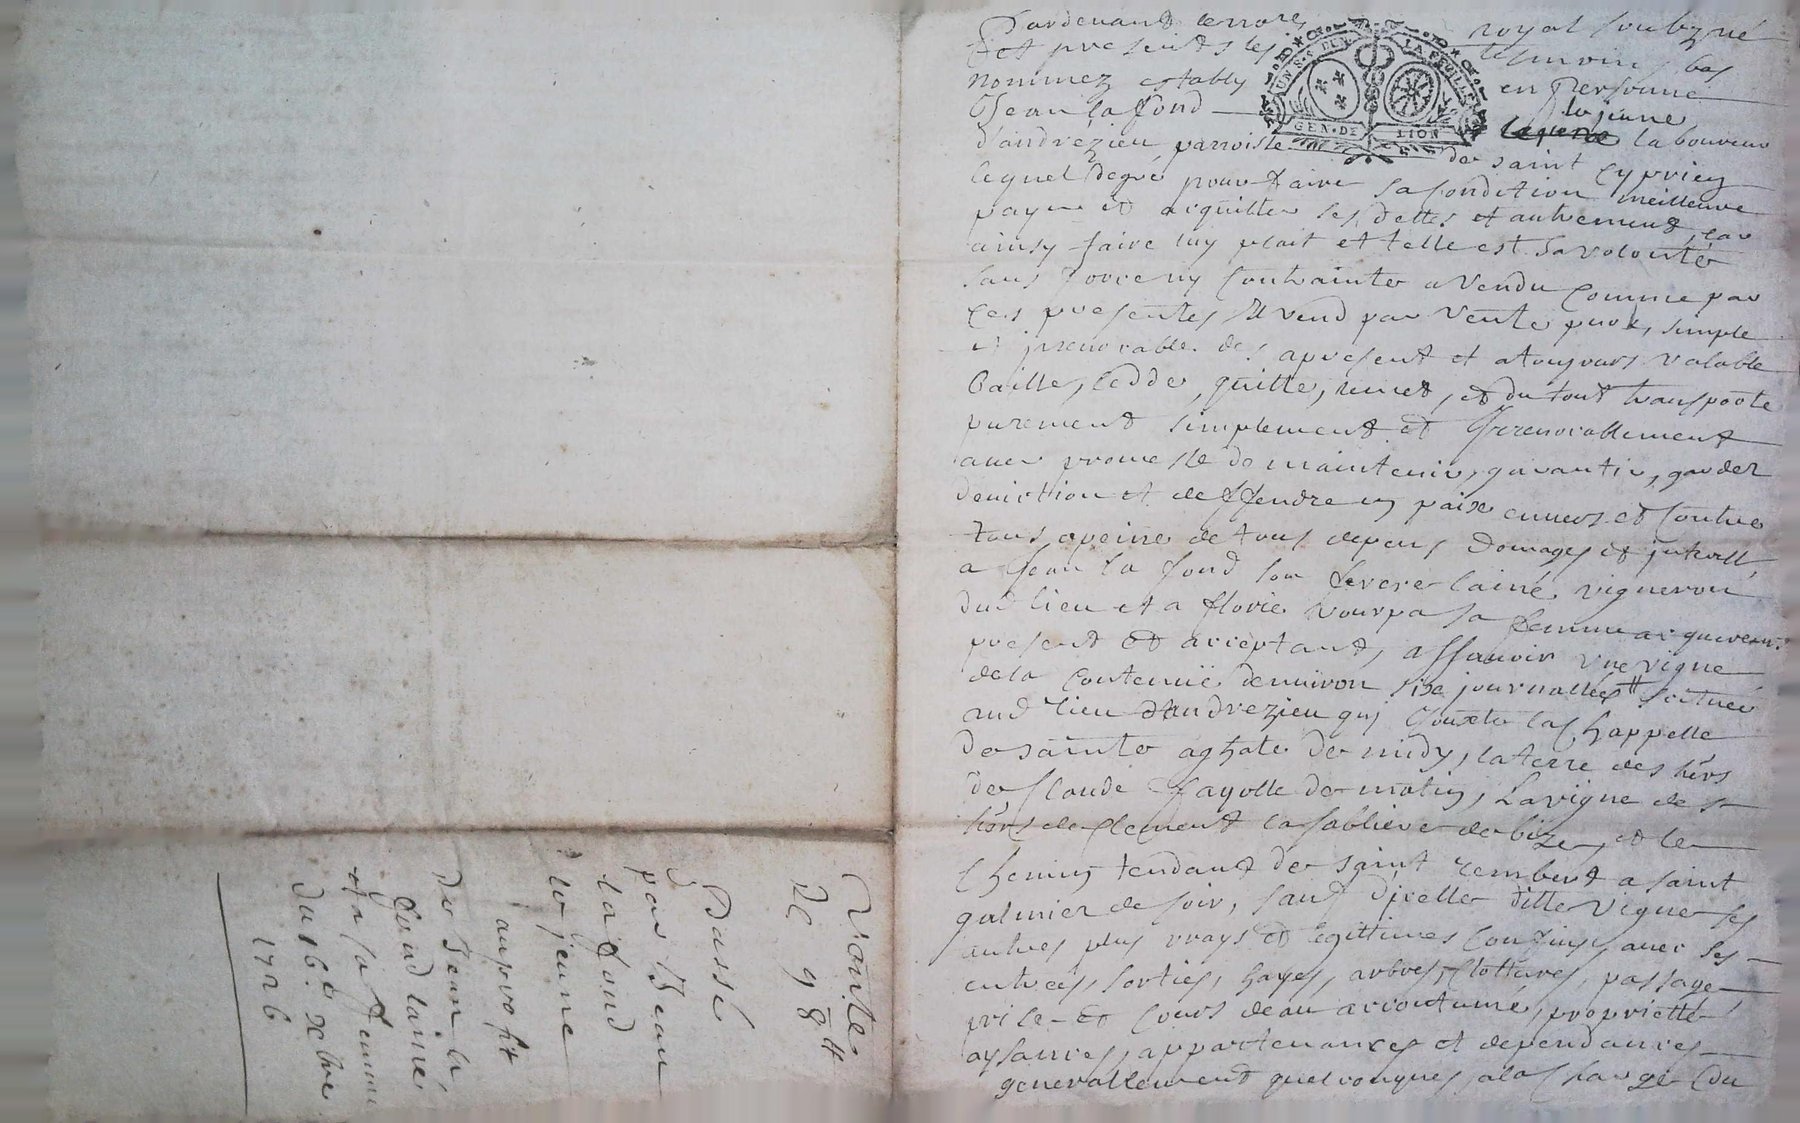 Pardevant le no.re royal soubzné
Et presents les tesmoins bas
nommez estably en personne
Jean la fond le jeune laboureur
d'andrézieu parroisse de saint Cyprien
lequel degré pour faire sa condition meilleure
payer et acquitter ses dettes et autrement car
ainsy faire luy plait et telle est sa volonté
sans force ny contrainte a vendu comme par
ces presentes Il vend par vente pure, simple
et irrevocable des apresent et atousjours valable
baille, cedde, quitte, remet, et du tout transporte
purement simplement et Irrevocablement
avec promesse de maintenir, garantir, garder
deviction et deffendre en paix envers et contre
tous, apeine de tous depens domages et
a Jean la fond son frere lainé vigneron
dud lieu et a florie vourpa sa femme
present et acceptant, assavoir une vigne
de la contenuë denviron six journallées scituée
aud lieu dandrezieu qui Jouxte la Chappelle
de sainte aghate de midy, la terre des hérs
de Claude fayolle de matin, la vigne des
hérs de Clement la sabliere de bize, et le
Chemin tendant de saint rembert a saint
galmier de soir, sauf dicelle ditte vigne ses
autres plus vrays et legittimes confins, avec ses
entrées, sorties, hayes, arbres, clottures, passage
prise et cours deau accoutumé, proprietté
aysances, appartenances et dependances
generallement quelconques, a la charge du
Vante
de 98 ll
Passé
par Jean
la fond
le jeune
au profit
De Jean la
fond lainé
et a sa femme
du 16.e xbre
1726
UN S. 6 DEN. LA FEUILLE
GEN. DE LION